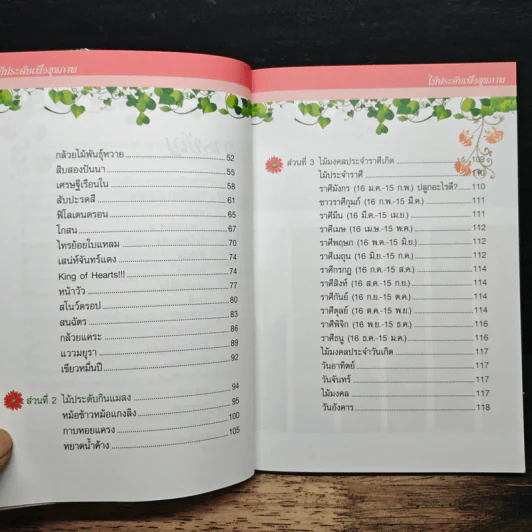 ไม้ประดับเพื่อสุขภาพ
กล้วยไม้พันธุ์หวาย 52
สิบสองปันนา 55
เศรษฐีเรือนใน 58
สับปะรดสี 61
ฟิโลเดนดรอน 65
โกสน 67
ไทรย้อยใบแหลม 70
เสน่ห์จันทร์แดง 74
King of Hearts!!! 74
หน้าวัว 77
สโนว์ดรอป 80
สนฉัตร 83
กล้วยแคระ 86
แววมยุรา 89
เขียวหมื่นปี 92
ส่วนที่ 2 ไม้ประดับกินแมลง 94
หม้อข้าวหม้อแกงลิง 95
กาบหอยแครง 100
หยาดน้ำค้าง 105
ไม้ประดับเพื่อสุขภาพ
ส่วนที่ 3 ไม้มงคลประจำราศีเกิด 109
ไม้ประจำราศี 110
ราศีมังกร (16 ม.ค.-15 ก.พ.) ปลูกอะไรดี? 110
ชาวราศีกุมภ์ (16 ก.พ.-15 มี.ค.) 111
ราศีมีน (16 มี.ค.-15 เม.ย.) 111
ราศีเมษ (16 เม.ษ.-15 พ.ค.) 112
ราศีพฤษภ (16 พ.ค.-15 มิ.ย.) 112
ราศีเมถุน (16 มิ.ย.-15 ก.ค.) 112
ราศีกรกฎ (16 ก.ค.-15 ส.ค.) 114
ราศีสิงห์ (16 ส.ค.-15 ก.ย.) 114
ราศีกันย์ (16 ก.ย.-15 ต.ค.) 114
ราศีตุลย์ (16 ต.ค.-15 พ.ย.) 114
ราศีพิจิก (16 พ.ย.-15 ธ.ค.) 116
ราศีธนู (16 ธ.ค.-15 ม.ค.) 116
ไม้มงคลประจำวันเกิด 117
วันอาทิตย์ 117
วันจันทร์ 117
ไม้มงคล 117
วันอังคาร 118